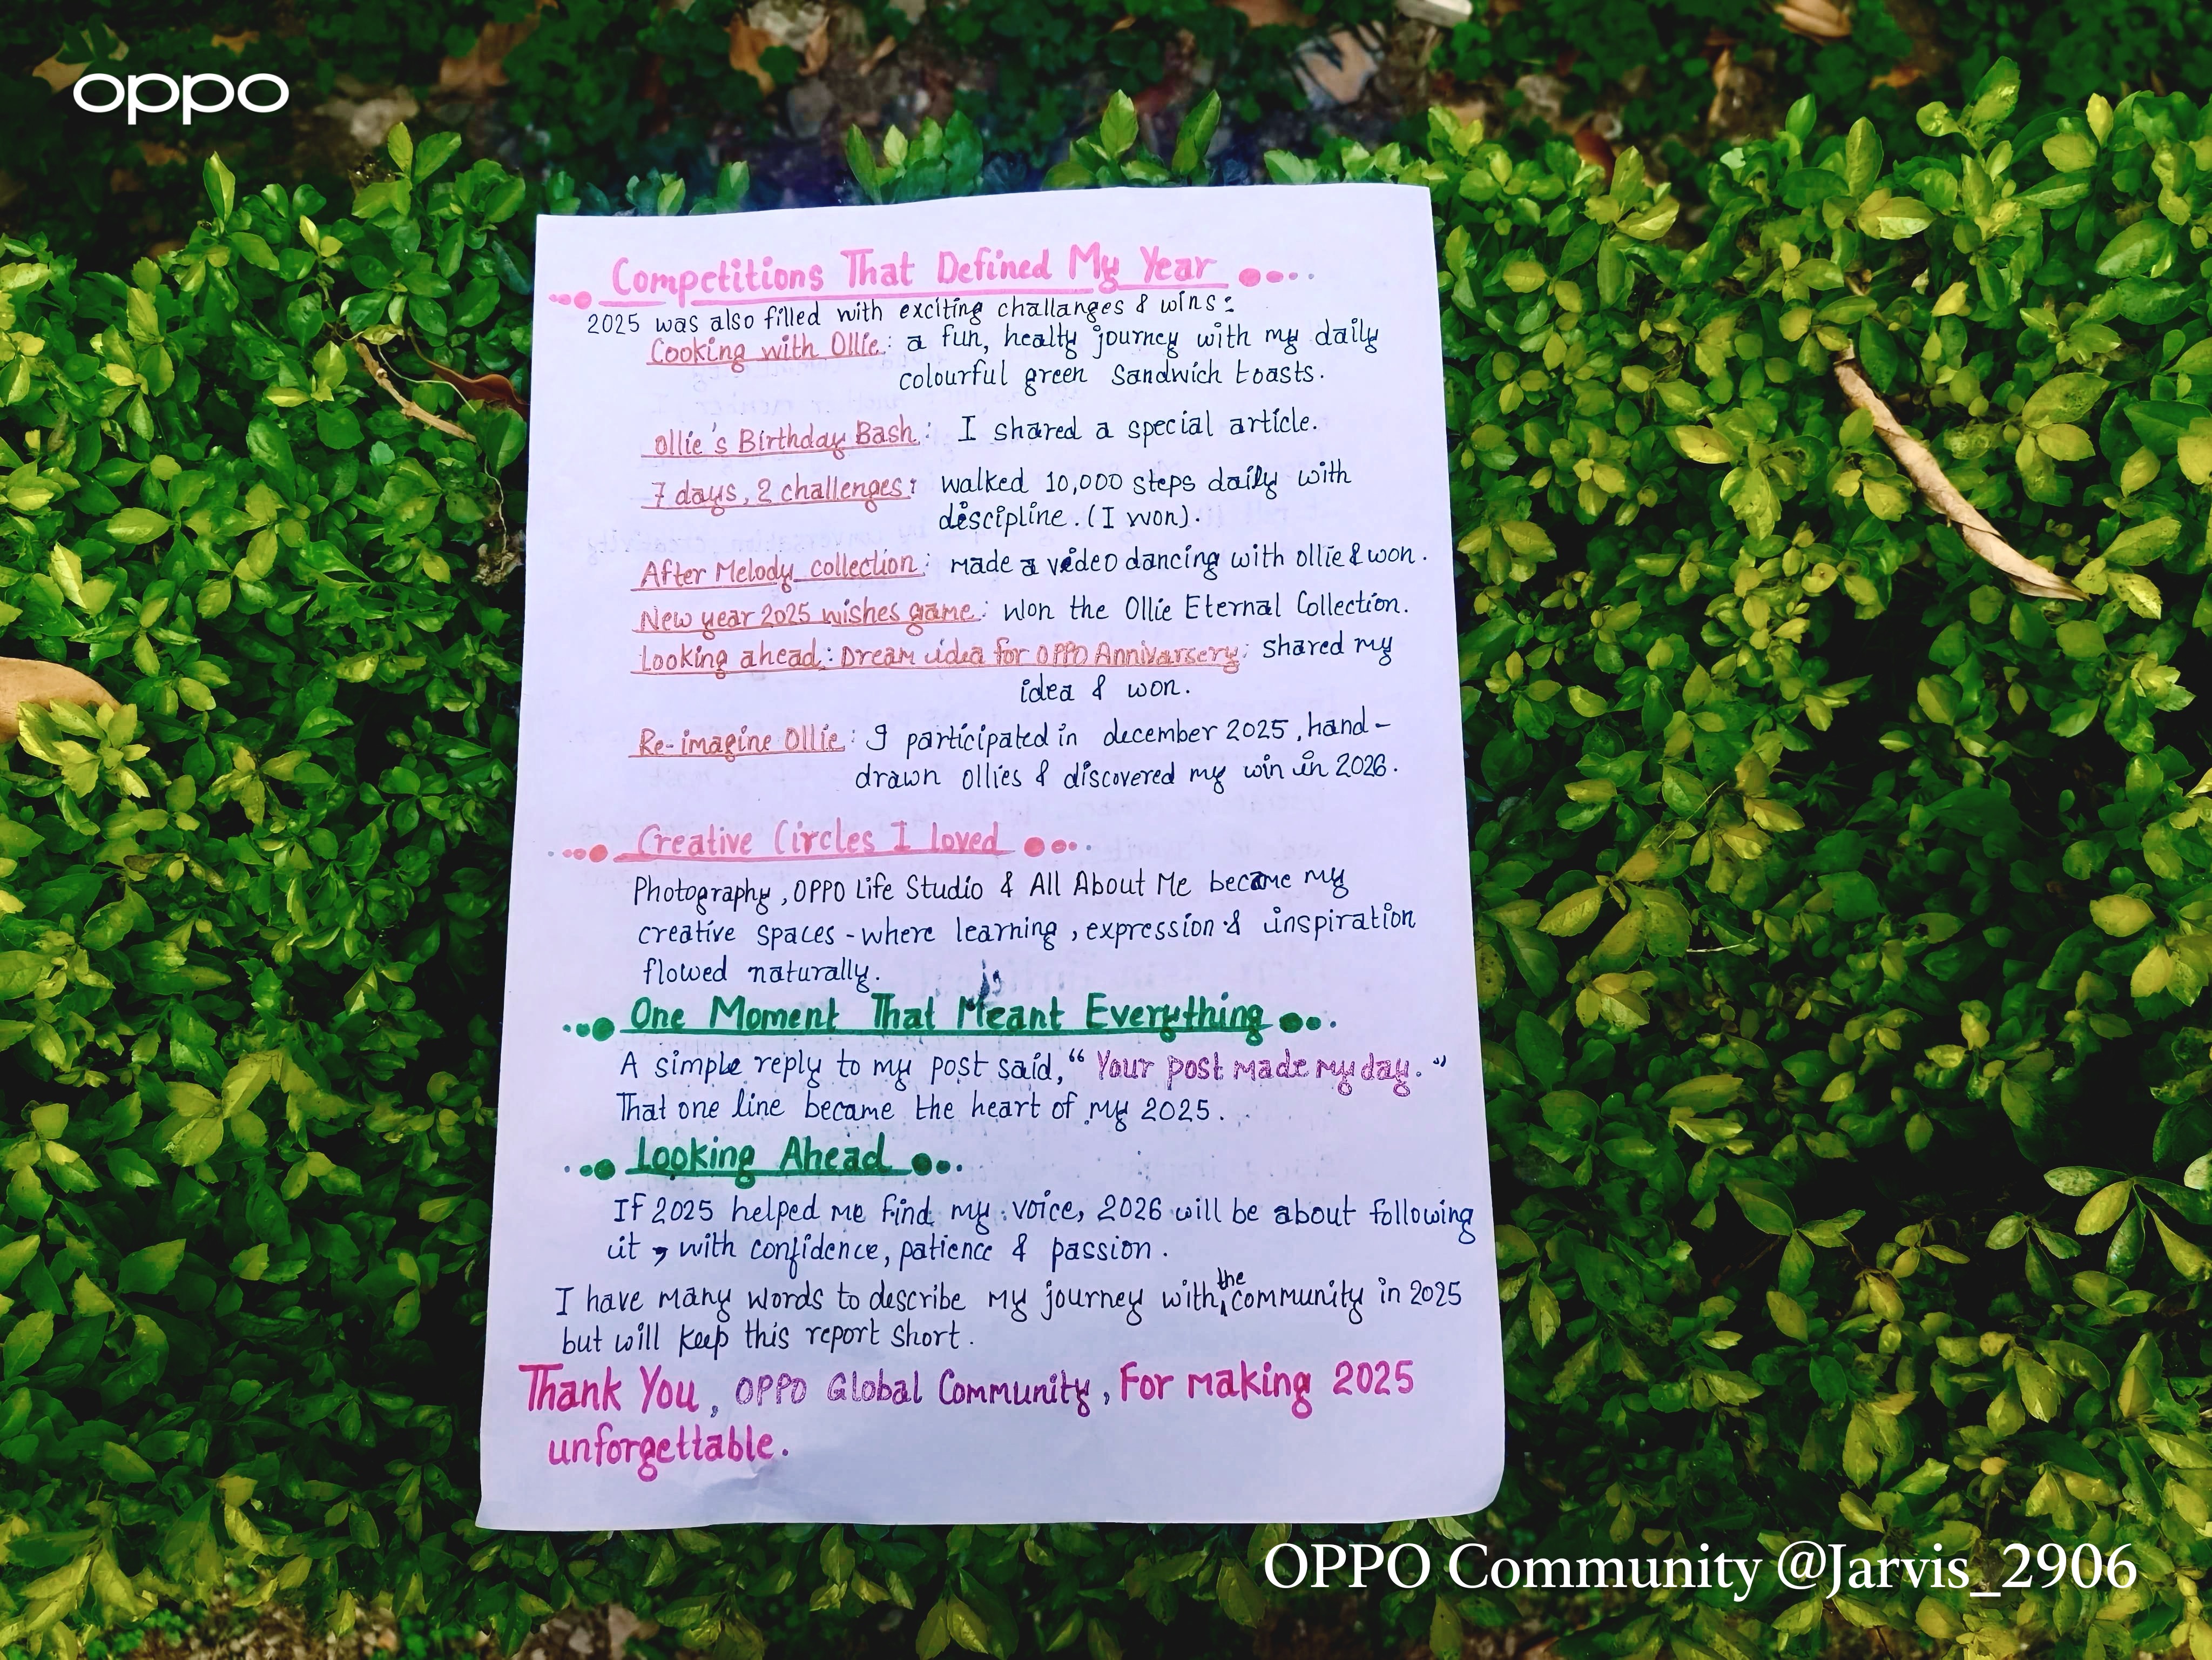 oppo
Competitions That Defined My Year
2025 was also filled with exciting challanges & wins:
Cooking with Ollie: a fun, healty journey with my daily
colourful green Sandwich toasts.
Ollie's Birthday Bash: I shared a special article.
7 days, 2 challenges: walked 10,000 steps daily with
discipline. (I won).
After Melody collection: made a video dancing with ollie & won.
New year 2025 wishes game: won the Ollie Eternal Collection.
Looking ahead: Dream idea for OPPO Annivarsery: shared my
idea & won.
Re-imagine Ollie: I participated in december 2025, hand-
drawn ollies & discovered my win in 2026.
Creative Circles I loved
Photography, OPPO Life Studio & All About Me became my
creative spaces - where learning, expression & inspiration
flowed naturally.
One Moment That Meant Everything
A simple reply to my post said, "Your post made my day."
That one line became the heart of my 2025.
Looking Ahead
If 2025 helped me find my voice, 2026 will be about following
it, with confidence, patience & passion.
I have many words to describe my journey with the community in 2025
but will keep this report short.
Thank You, OPPO Global Community, For making 2025
unforgettable.
OPPO Community @Jarvis_2906